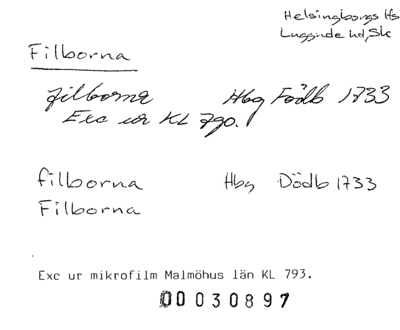 Helsingborgs Hfs
Luggude hd, Sk
Filborna
filborna Hbg Födb 1733
Exc ur KL 790.
filborna Hbg Dödb 1733
Filborna
Exc ur mikrofilm Malmöhus län KL 793.
00030897